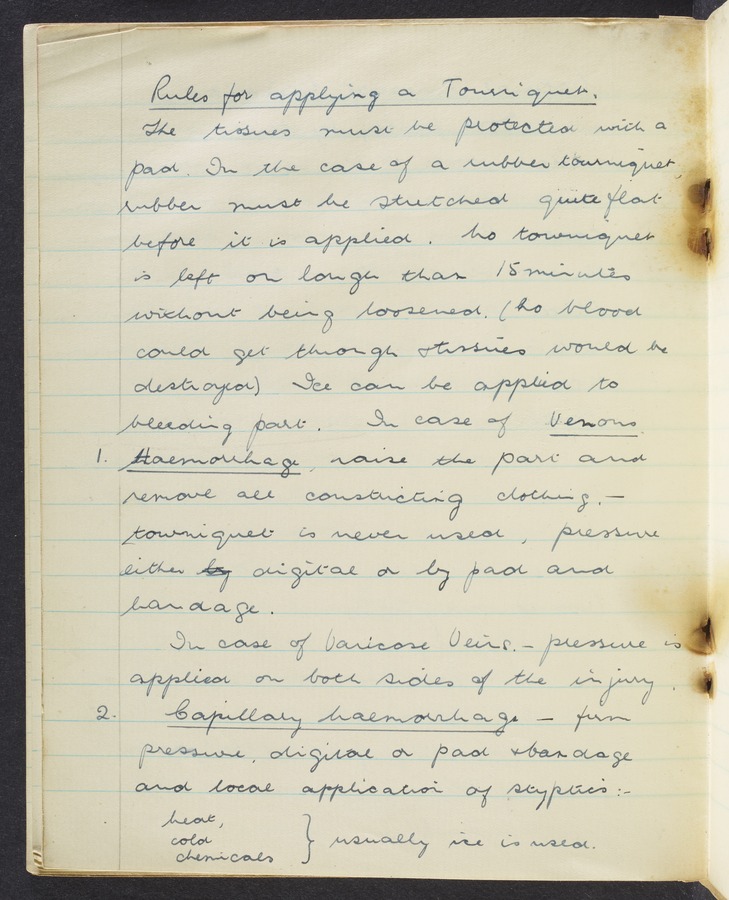 Rules for applying a Tourniquet.
The tissues must be protected with a
pad. In the case of a rubber tourniquet,
rubber must be stretched quite flat
before it is applied. No tourniquet
is left on longer than 15 minutes
without being loosened. (No blood
could get through & tissues would be
destroyed) Ice can be applied to
bleeding part. In case of Venous
1. Haemorrhage, raise the part and
remove all constricting clothing. —
tourniquet is never used, pressure
either by digital or by pad and
bandage.
In case of Varicose Veins. – pressure is
applied on both sides of the injury.
2. Capillary haemorrhage — firm
pressure, digital or pad & bandage
and local application of styptics:-
heat,
cold } usually ice is used.
chemicals